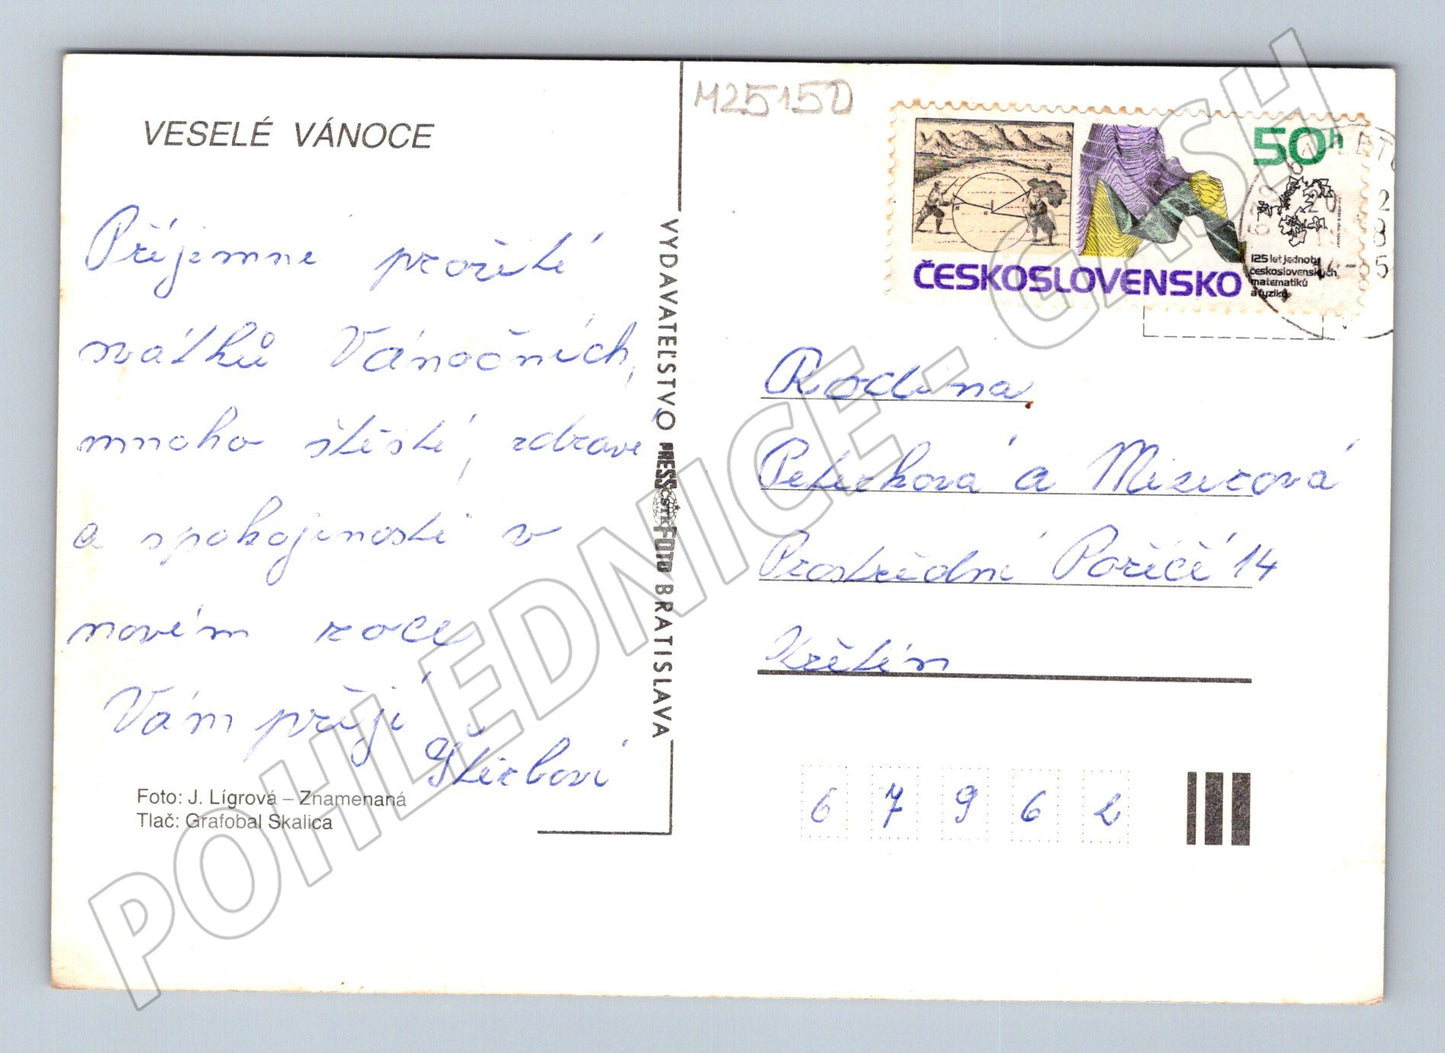 VESELÉ VÁNOCE
Příjemné prožití
svátků Vánočních,
mnoho štěstí, zdraví
a spokojenosti v
novém roce
Vám přejí
Štěrbovi
Foto: J. Lígrová – Znamenaná
Tlač: Grafobal Skalica
VYDAVATEĽSTVO PRESSFOTO BRATISLAVA
ČSTK
M2515D
50h
ČESKOSLOVENSKO
125 let jednoty
československých
matematiků
a fyziků
Rodina
Petěrková a Mizerová
Prostřední Poříčí 14
Křetín
67962
POHLEDNICE - GASH